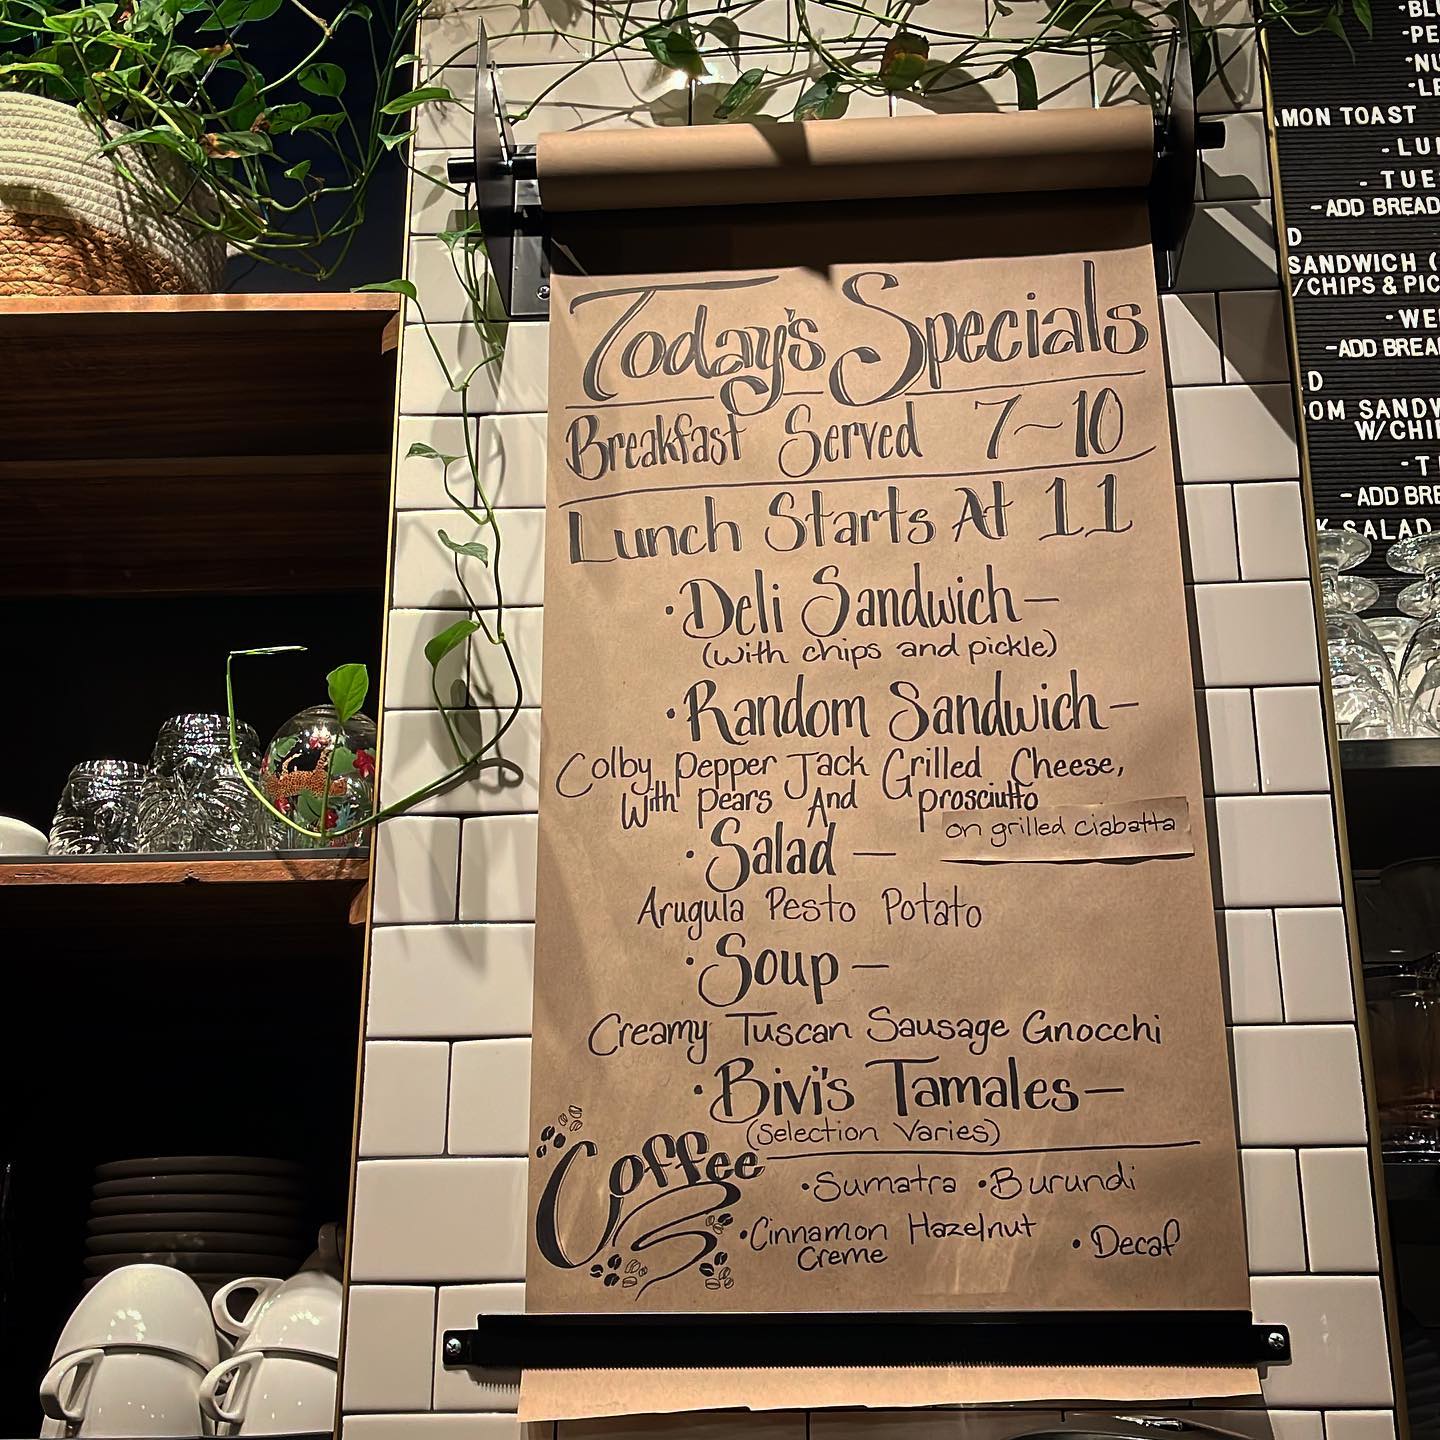 Today's Specials
Breakfast Served 7~10
Lunch Starts At 11
·Deli Sandwich—
(with chips and pickle)
·Random Sandwich—
Colby Pepper Jack Grilled Cheese,
With Pears And prosciutto
on grilled ciabatta
·Salad —
Arugula Pesto Potato
·Soup —
Creamy Tuscan Sausage Gnocchi
·Bivi's Tamales—
(Selection Varies)
Coffee
·Sumatra ·Burundi
·Cinnamon Hazelnut
Creme
·Decaf
TOAST
-ADD BREAD
SANDWICH (
/CHIPS &
SALAD